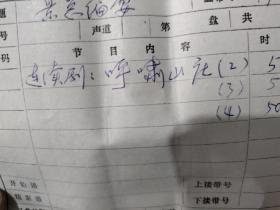 题
号 声道 第 盘 共
节目内容 时
码 连续剧：呼啸山庄 (2) 5
(3) 5
(4) 50
开始语 上接带号
结束语 下接带号